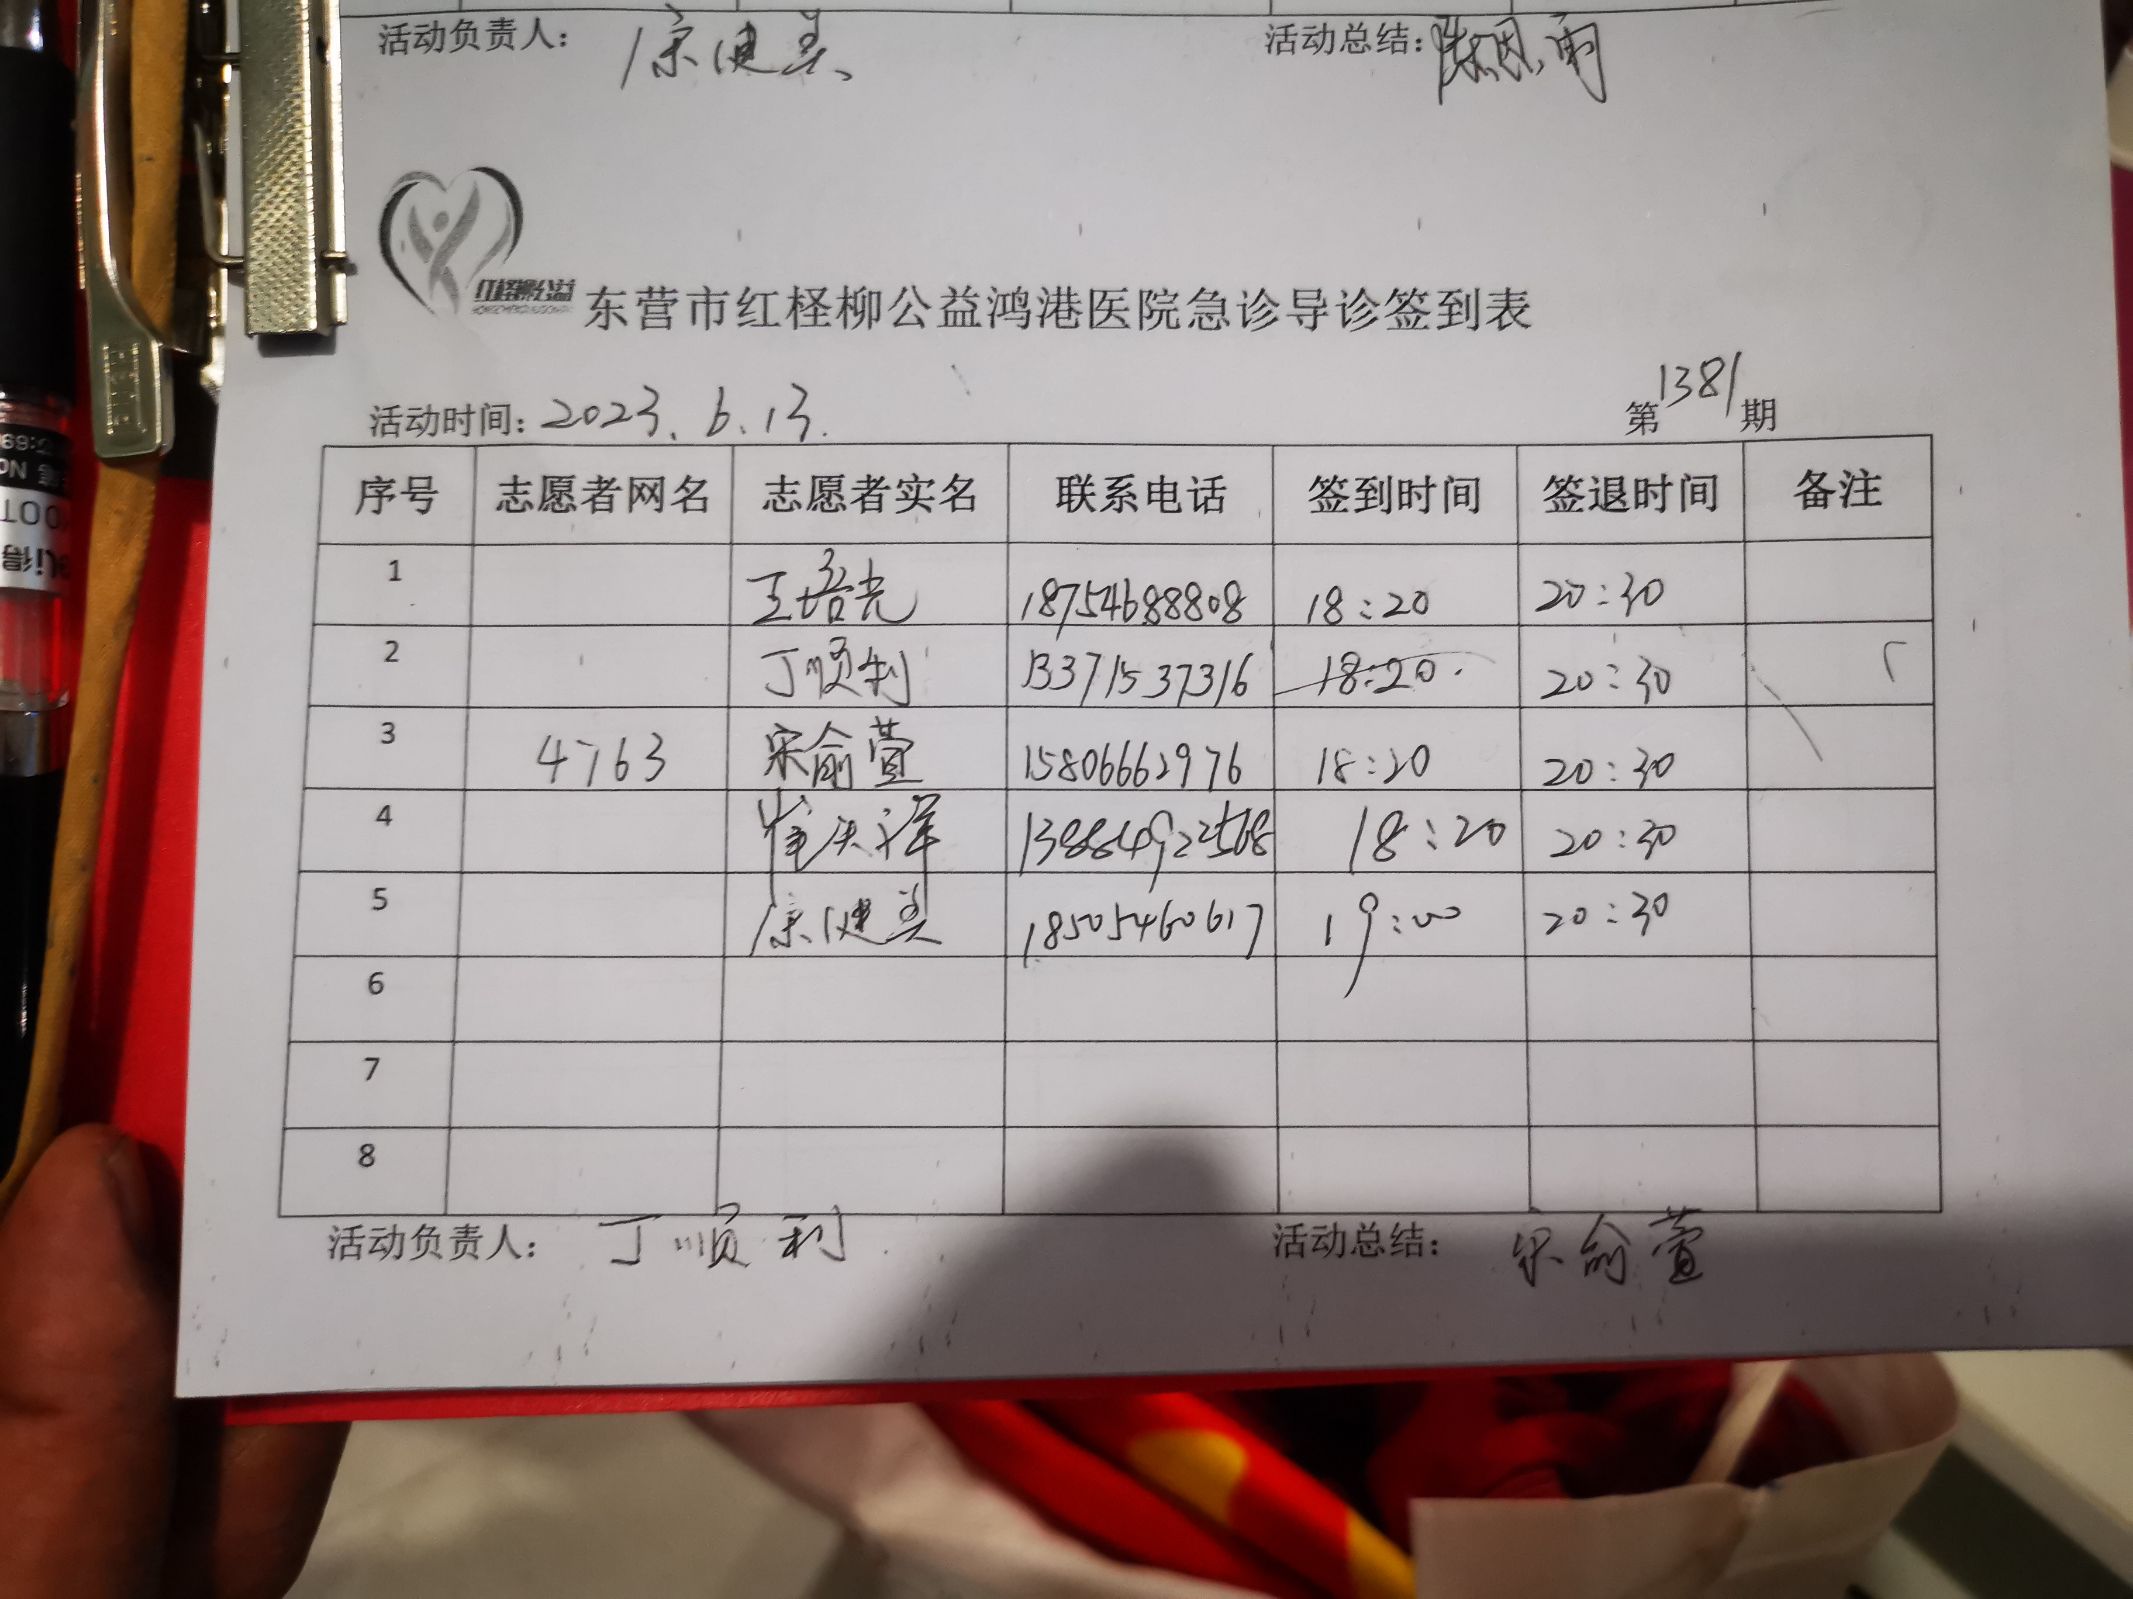 活动负责人： 康健美 活动总结：
红柽柳公益
东营市红柽柳公益鸿港医院急诊导诊签到表
活动时间：2023.6.13. 第1381期
序号 志愿者网名 志愿者实名 联系电话 签到时间 签退时间 备注
1 王培光 18754688808 18:20 20:30
2 丁顺利 13371537316 18:20. 20:30
3 4763 宋俞萱 15806662976 18:20 20:30
4 崔天洋 13884922568 18:20 20:30
5 康健美 18505460617 19:00 20:30
6
7
8
活动负责人： 丁顺利 活动总结： 宋俞萱